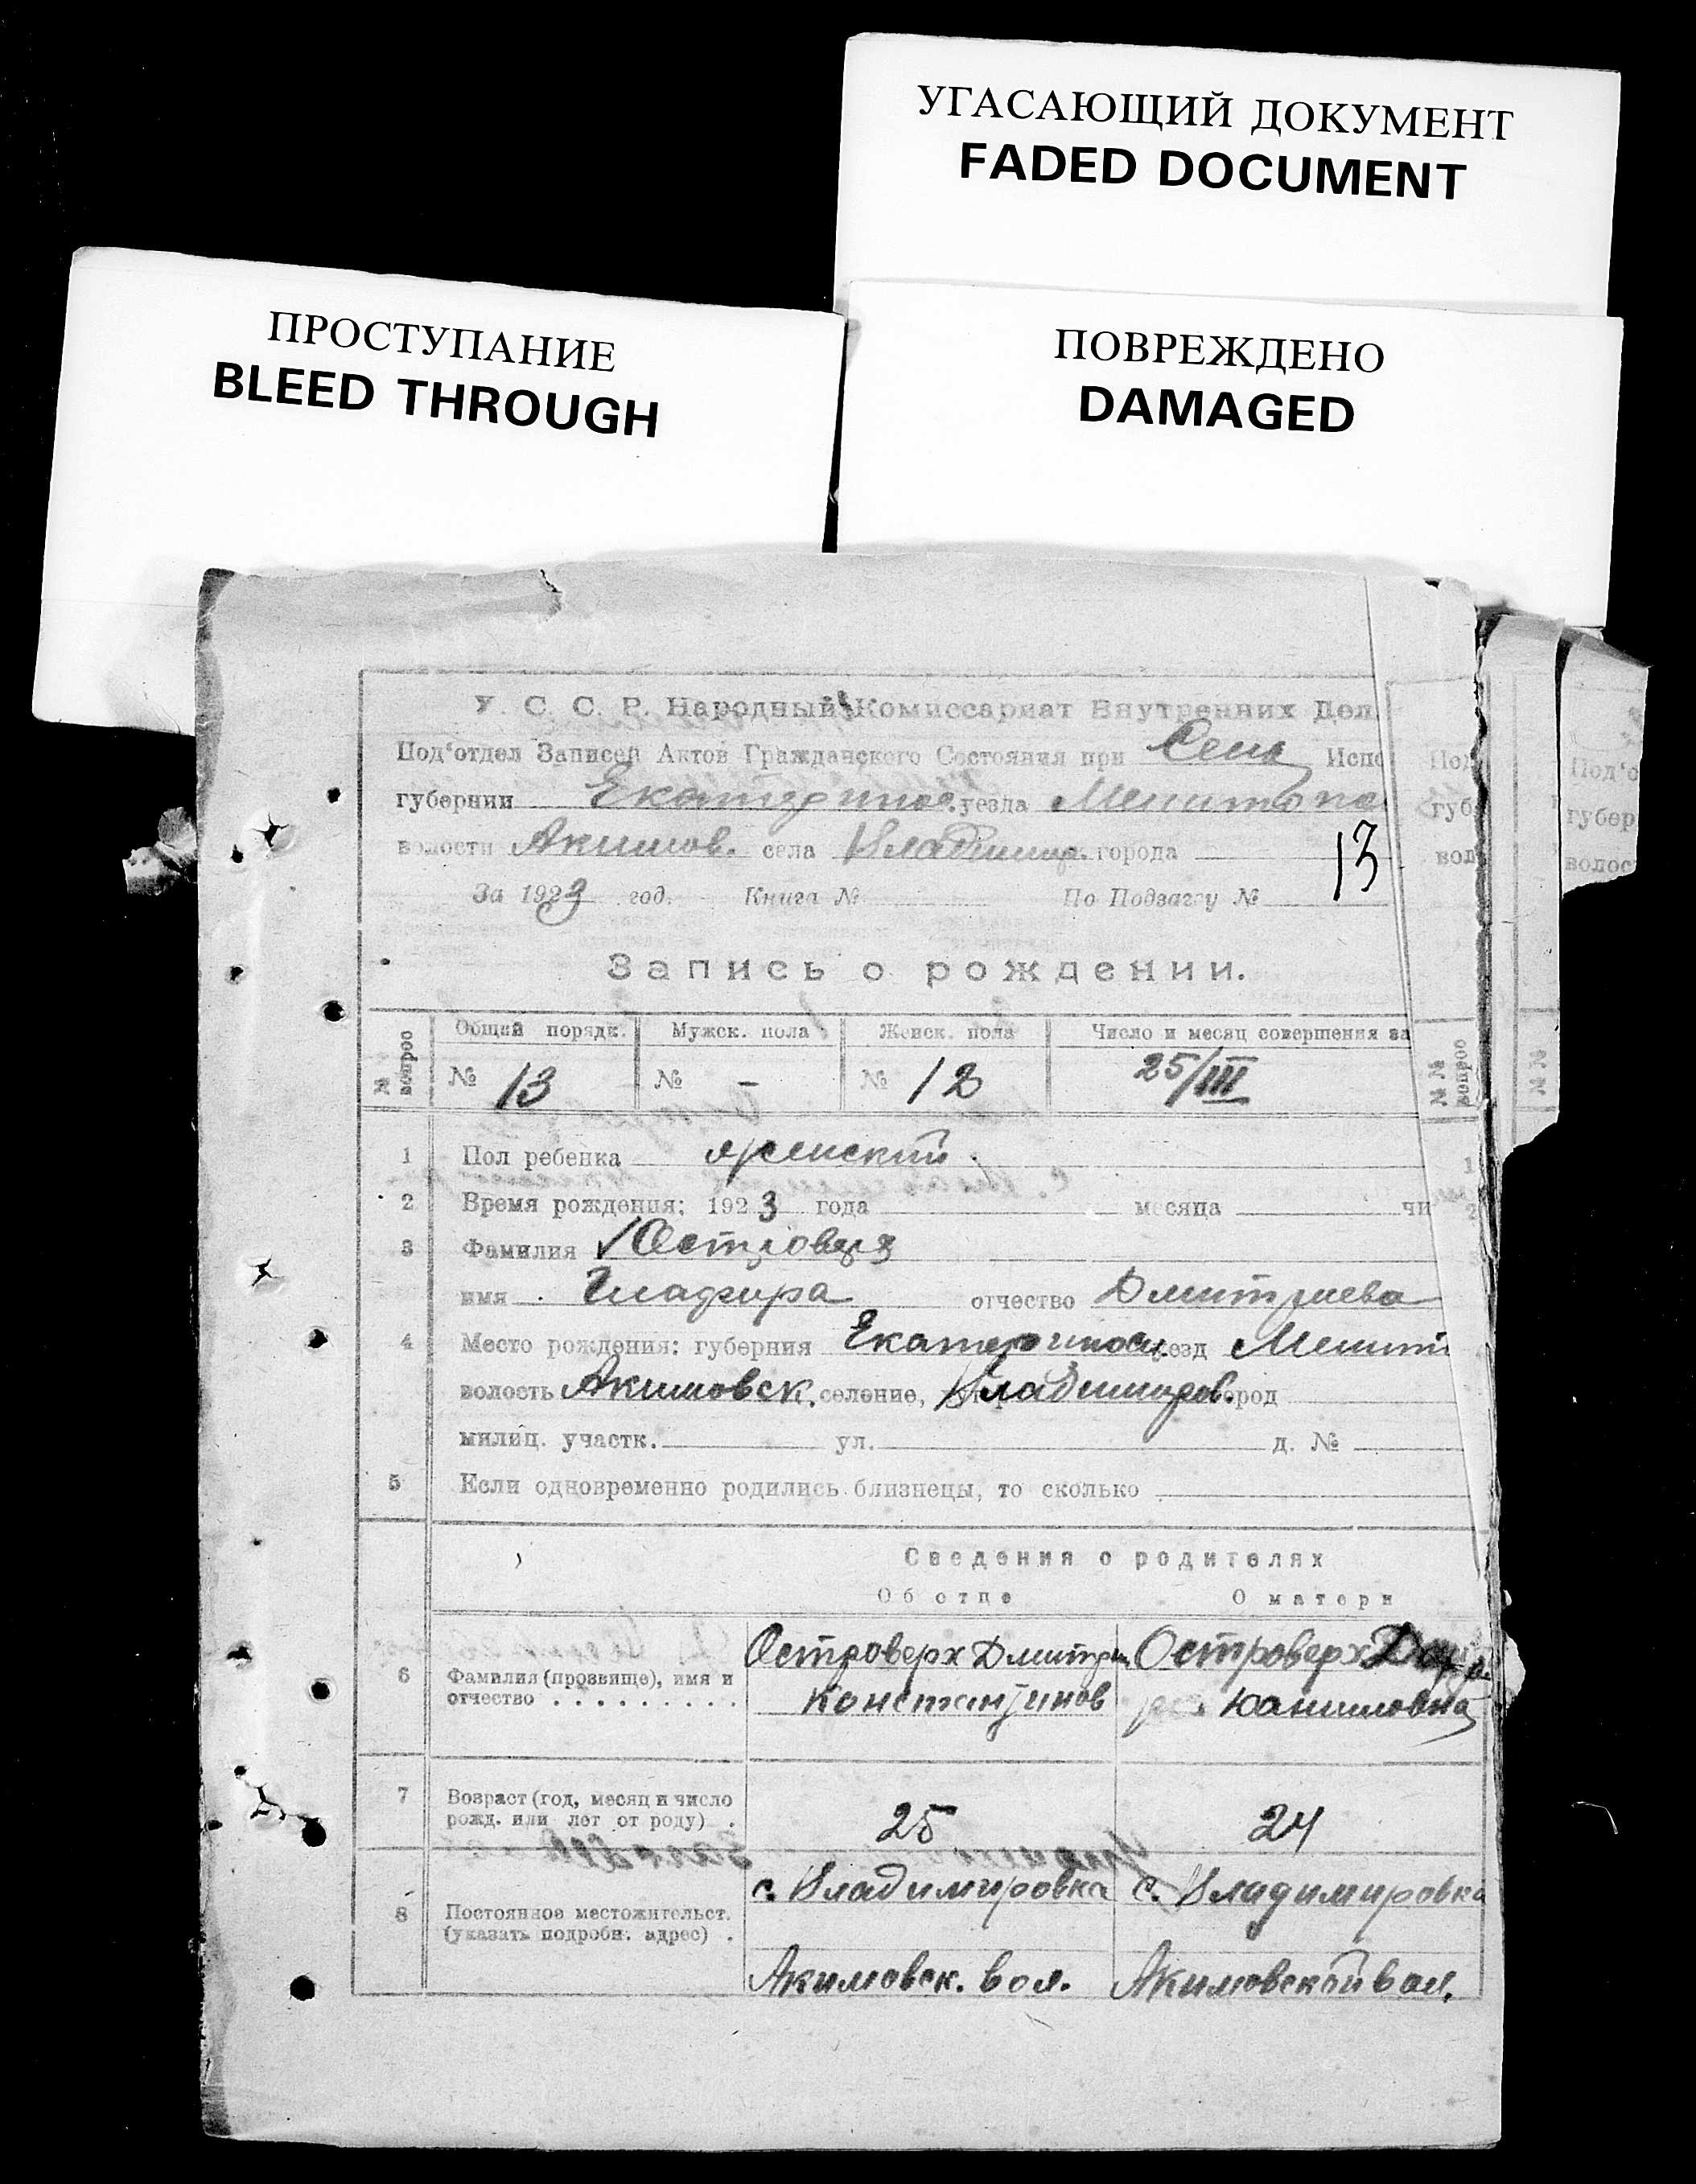 УГАСАЮЩИЙ ДОКУМЕНТ
FADED DOCUMENT
ПРОСТУПАНИЕ
BLEED THROUGH
ПОВРЕЖДЕНО
DAMAGED
У. С. С. Р. Народный Комиссариат Внутренних Дел
Под'отдел Записей Актов Гражданского Состояния при Испо
губернии Екатеринос. уезда Мелитопо
волости Акимов. села Владимир. города
13
За 1923 год. Книга № По Подзагсу №
Запись о рождении.
№ вопрос Общий порядк. Мужск. пола Женск. пола Число и месяц совершения за
№ 13 № - № 12 25/III
1 Пол ребенка женский.
2 Время рождения: 1923 года месяца чи
3 Фамилия Островерх
имя Глафира отчество Дмитриева
4 Место рождения: губерния Екатеринос. уезд Мелит
волость Акимовск. селение, Владимиров. город
милиц. участк. ул. д. №
5 Если одновременно родились близнецы, то сколько
Сведения о родителях
Об отце О матери
6 Фамилия (прозвище), имя и отчество Островерх Дмитрий Константинов Островерх
7 Возраст (год, месяц и число рожд. или лет от роду) 25 24
8 Постоянное местожительст. (указать подробн. адрес) с. Владимировка с. Владимировка
Акимовск. вол. Акимовской вол.
Под'о
губер
волос